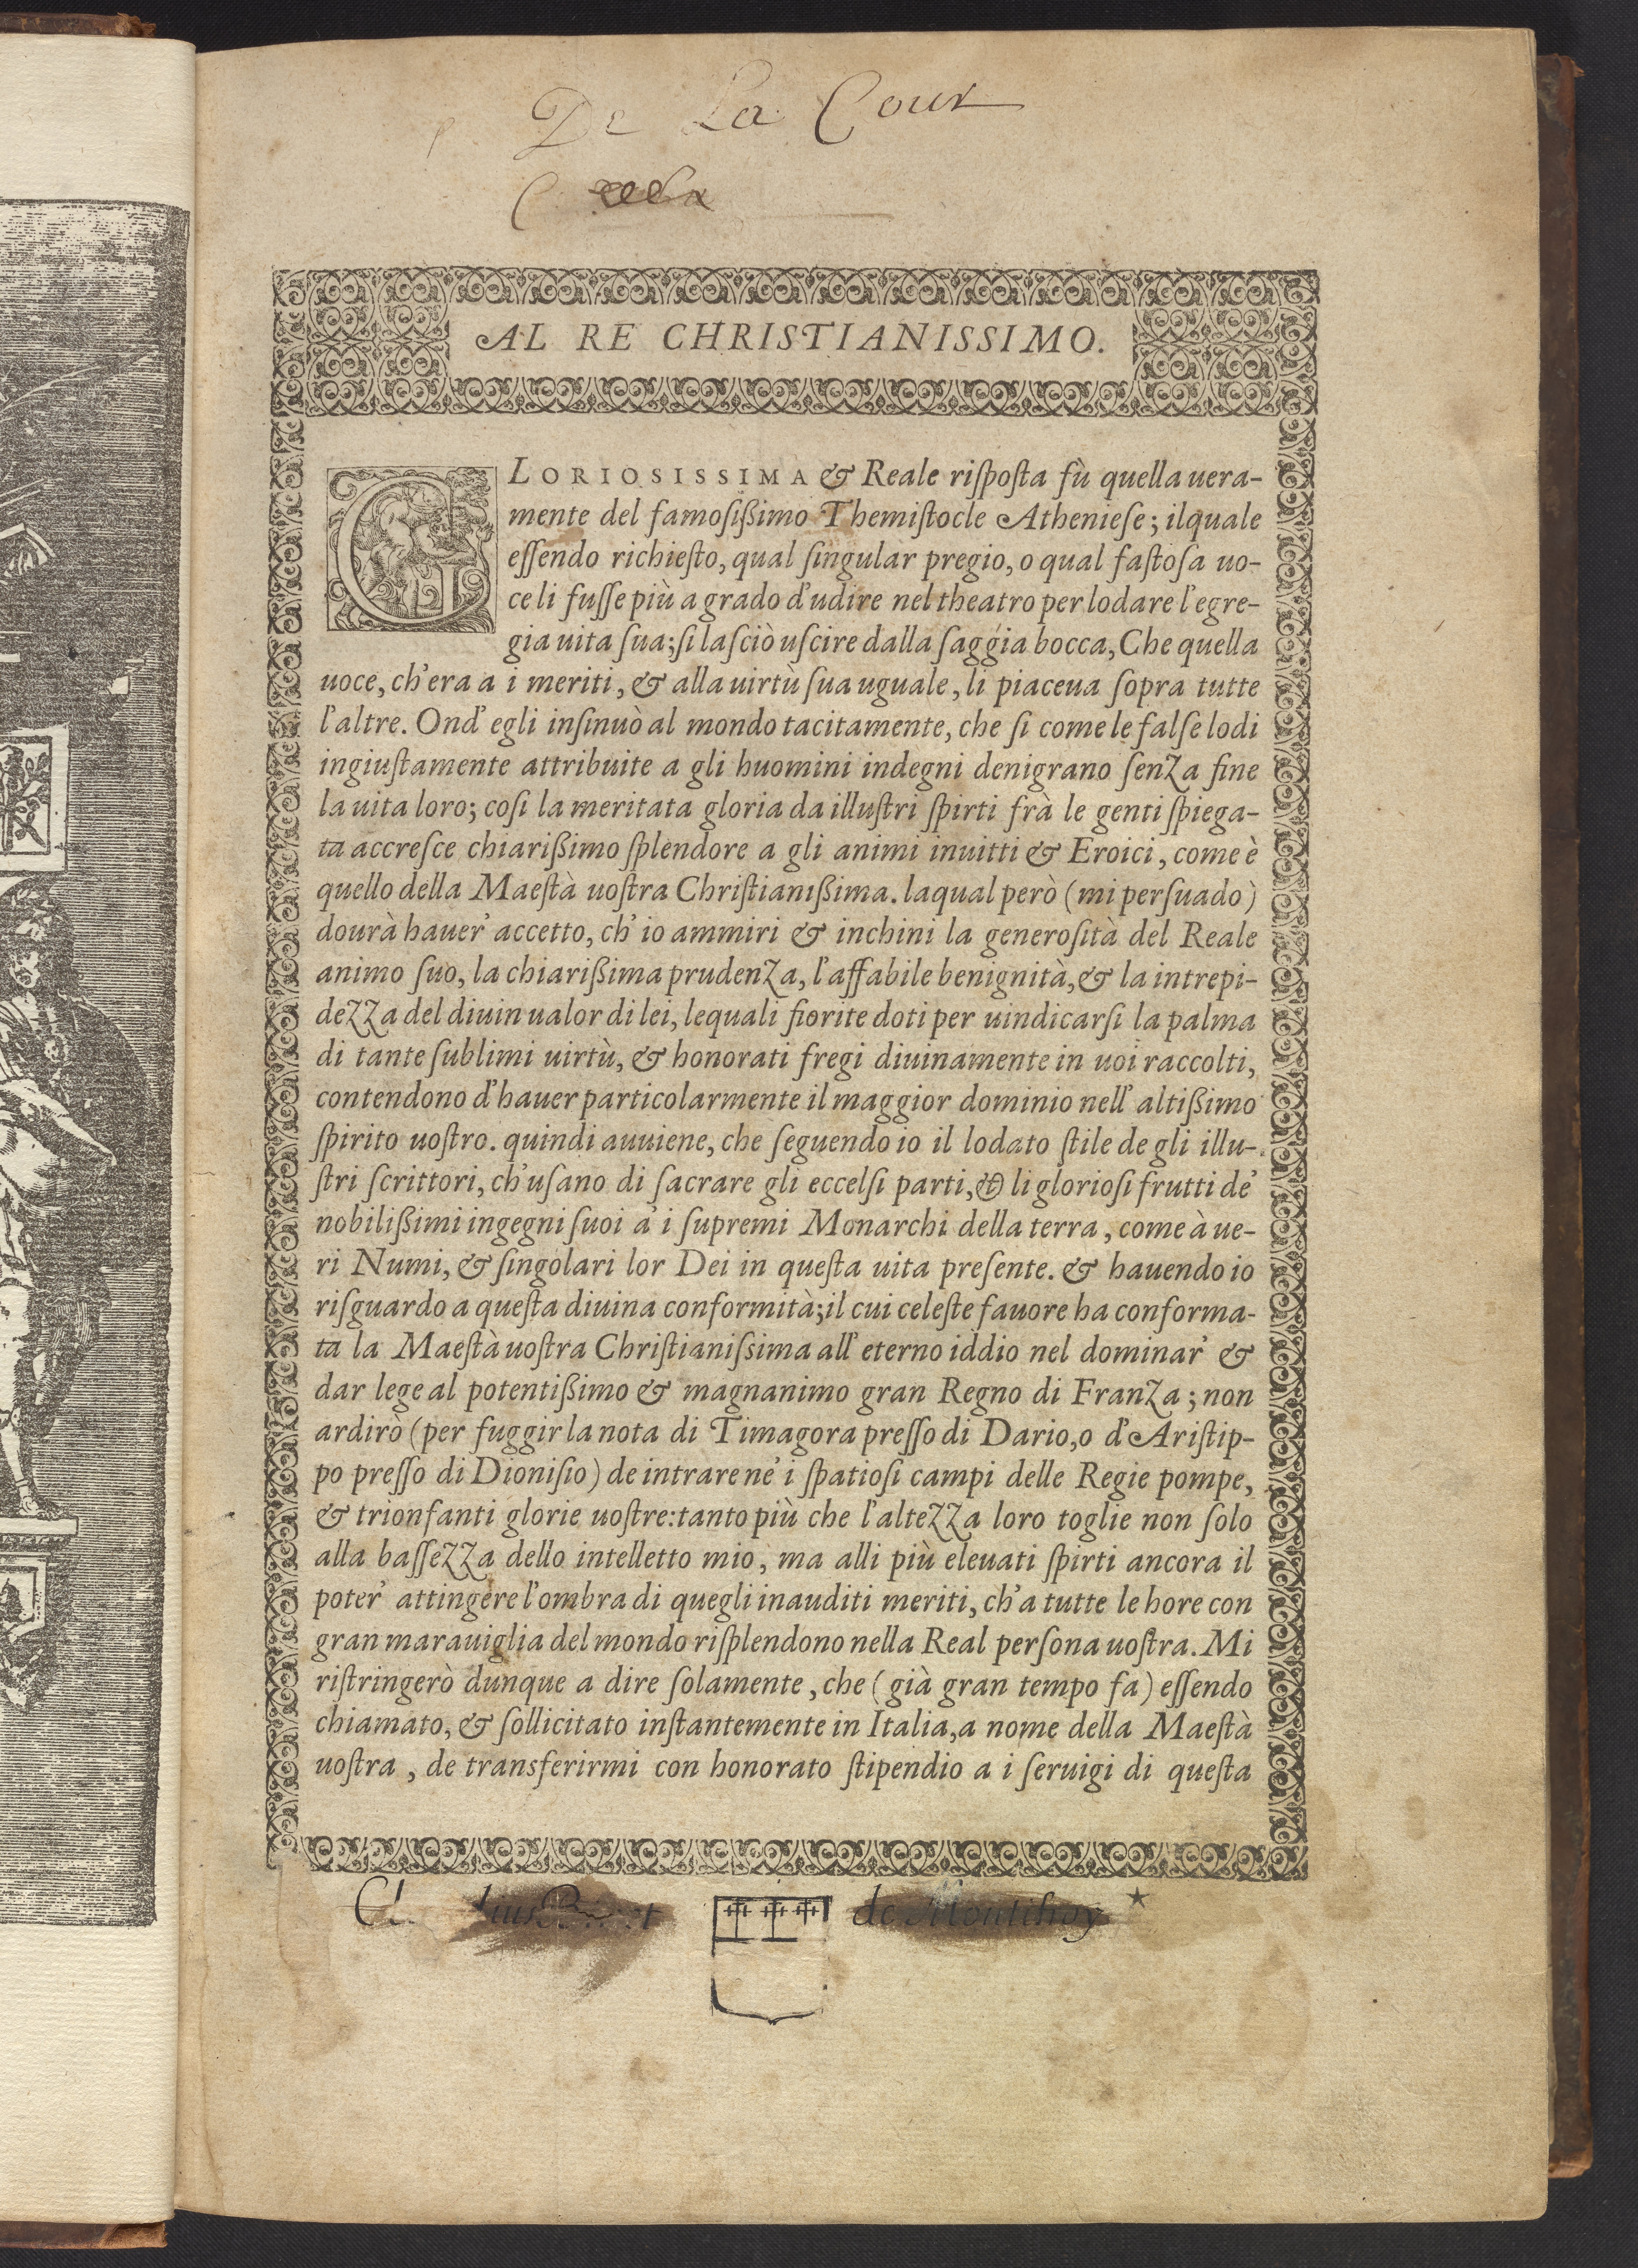 De La Cour
AL RE CHRISTIANISSIMO.
GLORIOSISSIMA & Reale riſpoſta fù quella uera-
mente del famoſißimo Themiſtocle Athenieſe; ilquale
eſſendo richieſto, qual ſingular pregio, o qual faſtoſa uo-
ce li fuſſe più a grado d'udire nel theatro per lodare l'egre-
gia uita ſua; ſi laſciò uſcire dalla ſaggia bocca, Che quella
uoce, ch'era a i meriti, & alla uirtù ſua uguale, li piaceua ſopra tutte
l'altre. Ond' egli inſinuò al mondo tacitamente, che ſi come le falſe lodi
ingiuſtamente attribuite a gli huomini indegni denigrano ſenza fine
la uita loro; coſi la meritata gloria da illuſtri ſpirti frà le genti ſpiega-
ta accreſce chiarißimo ſplendore a gli animi inuitti & Eroici, come è
quello della Maeſtà uoſtra Chriſtianißima. laqual però (mi perſuado)
dourà hauer' accetto, ch' io ammiri & inchini la generoſità del Reale
animo ſuo, la chiarißima prudenza, l'affabile benignità, & la intrepi-
dezza del diuin ualor di lei, lequali fiorite doti per uindicarſi la palma
di tante ſublimi uirtù, & honorati fregi diuinamente in uoi raccolti,
contendono d'hauer particolarmente il maggior dominio nell' altißimo
ſpirito uoſtro. quindi auuiene, che ſeguendo io il lodato ſtile de gli illu-
ſtri ſcrittori, ch'uſano di ſacrare gli eccelſi parti, & li glorioſi frutti de'
nobilißimi ingegni ſuoi a' i ſupremi Monarchi della terra, come à ue-
ri Numi, & ſingolari lor Dei in queſta uita preſente. & hauendo io
riſguardo a queſta diuina conformità; il cui celeſte fauore ha conforma-
ta la Maeſtà uoſtra Chriſtianiſsima all' eterno iddio nel dominar' &
dar lege al potentißimo & magnanimo gran Regno di Franza; non
ardirò (per fuggir la nota di Timagora preſſo di Dario, o d'Ariſtip-
po preſſo di Dioniſio) de intrare ne' i ſpatioſi campi delle Regie pompe,
& trionfanti glorie uoſtre: tanto più che l'altezza loro toglie non ſolo
alla baſſezza dello intelletto mio, ma alli più eleuati ſpirti ancora il
poter' attingere l'ombra di quegli inauditi meriti, ch'a tutte le hore con
gran marauiglia del mondo riſplendono nella Real perſona uoſtra. Mi
riſtringerò dunque a dire ſolamente, che (già gran tempo fa) eſſendo
chiamato, & ſollicitato inſtantemente in Italia, a nome della Maeſtà
uoſtra, de transferirmi con honorato ſtipendio a i ſeruigi di queſta